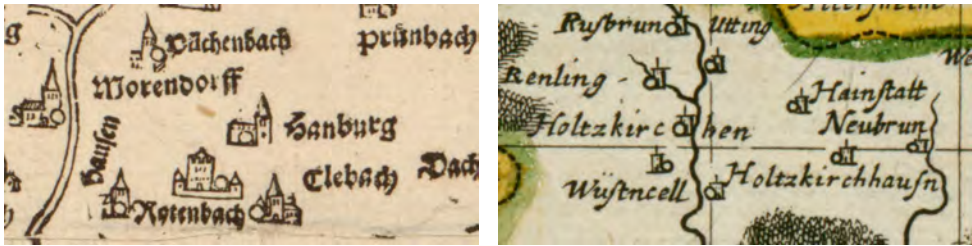 Dächenbach
prünbach
Morendorff
Hausen
Hanburg
Clebach
Dach
Rotenbach
Rusbrun
Utting
Renling
Hainstatt
Neubrun
Holtzkirchen
Wüstncell
Holtzkirchhausn